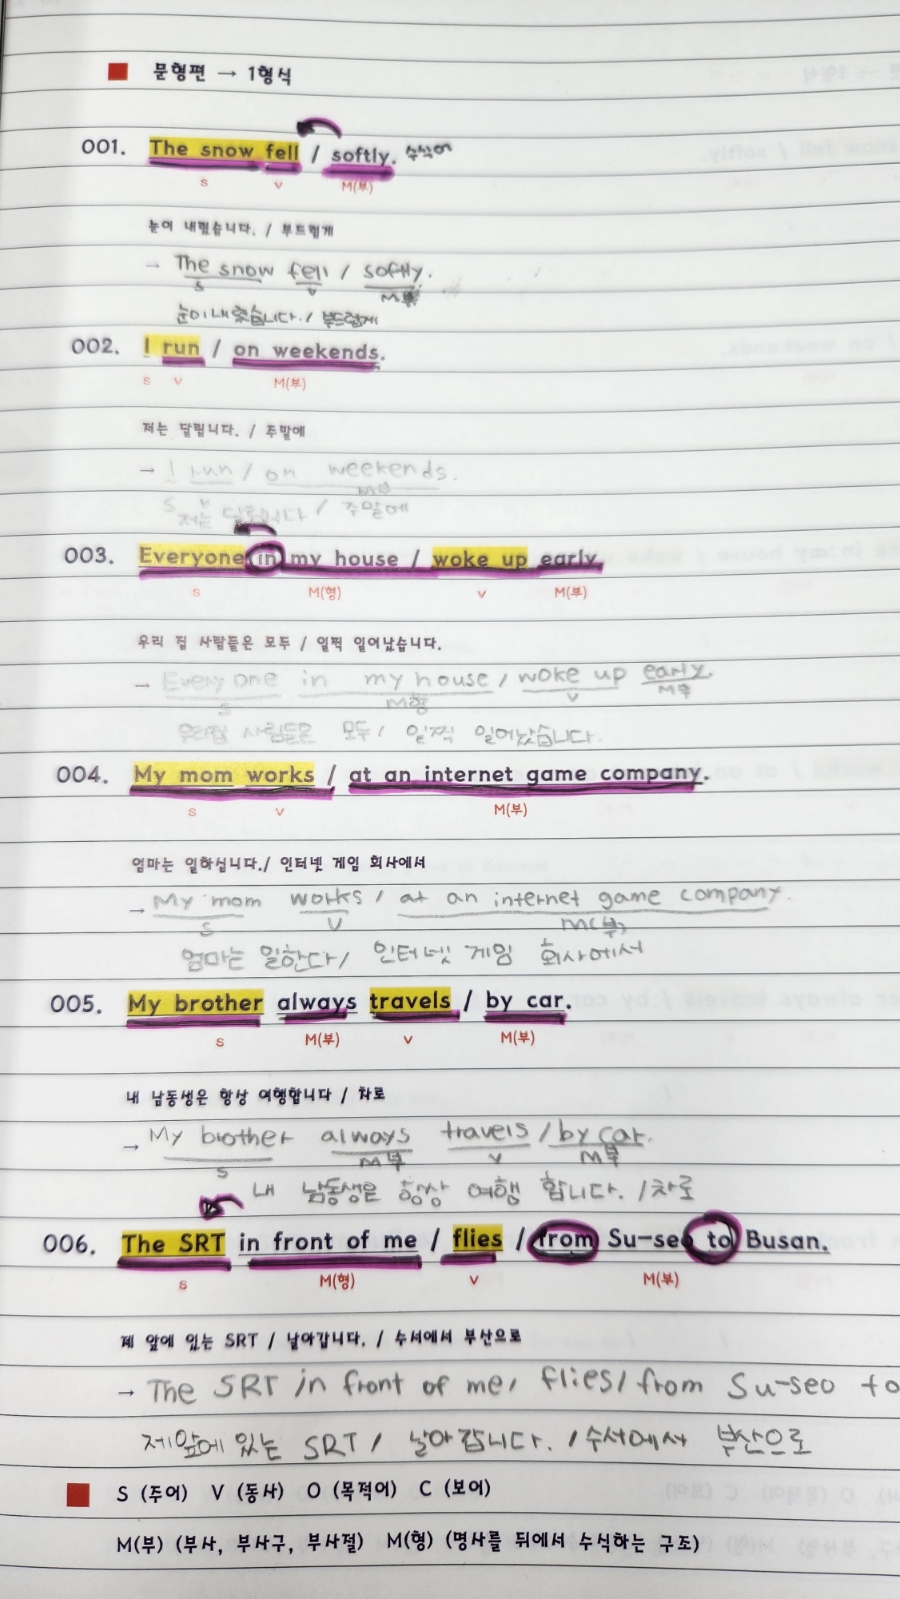 ■ 문형편 → 1형식
001. The snow fell / softly. 수식어
S V M(부)
눈이 내렸습니다. / 부드럽게
→ The snow fell / softly.
S V M부
눈이 내렸습니다. / 부드럽게
002. I run / on weekends.
S V M(부)
저는 달립니다. / 주말에
→ I run / on weekends.
S V M부
저는 달립니다 / 주말에
003. Everyone in my house / woke up early.
S M(형) V M(부)
우리 집 사람들은 모두 / 일찍 일어났습니다.
→ Everyone in my house / woke up early.
S M형 V M부
우리집 사람들은 모두 / 일찍 일어났습니다.
004. My mom works / at an internet game company.
S V M(부)
엄마는 일하십니다./ 인터넷 게임 회사에서
→ My mom works / at an internet game company.
S V M(부)
엄마는 일한다/ 인터넷 게임 회사에서
005. My brother always travels / by car.
S M(부) V M(부)
내 남동생은 항상 여행합니다 / 차로
→ My brother always travels / by car.
S M부 V M부
내 남동생은 항상 여행 합니다. /차로
006. The SRT in front of me / flies / from Su-seo to Busan.
S M(형) V M(부)
제 앞에 있는 SRT / 날아갑니다. / 수서에서 부산으로
→ The SRT in front of me/ flies/ from Su-seo to
제앞에 있는 SRT / 날아갑니다. /수서에서 부산으로
■ S (주어) V (동사) O (목적어) C (보어)
M(부) (부사, 부사구, 부사절) M(형) (명사를 뒤에서 수식하는 구조)